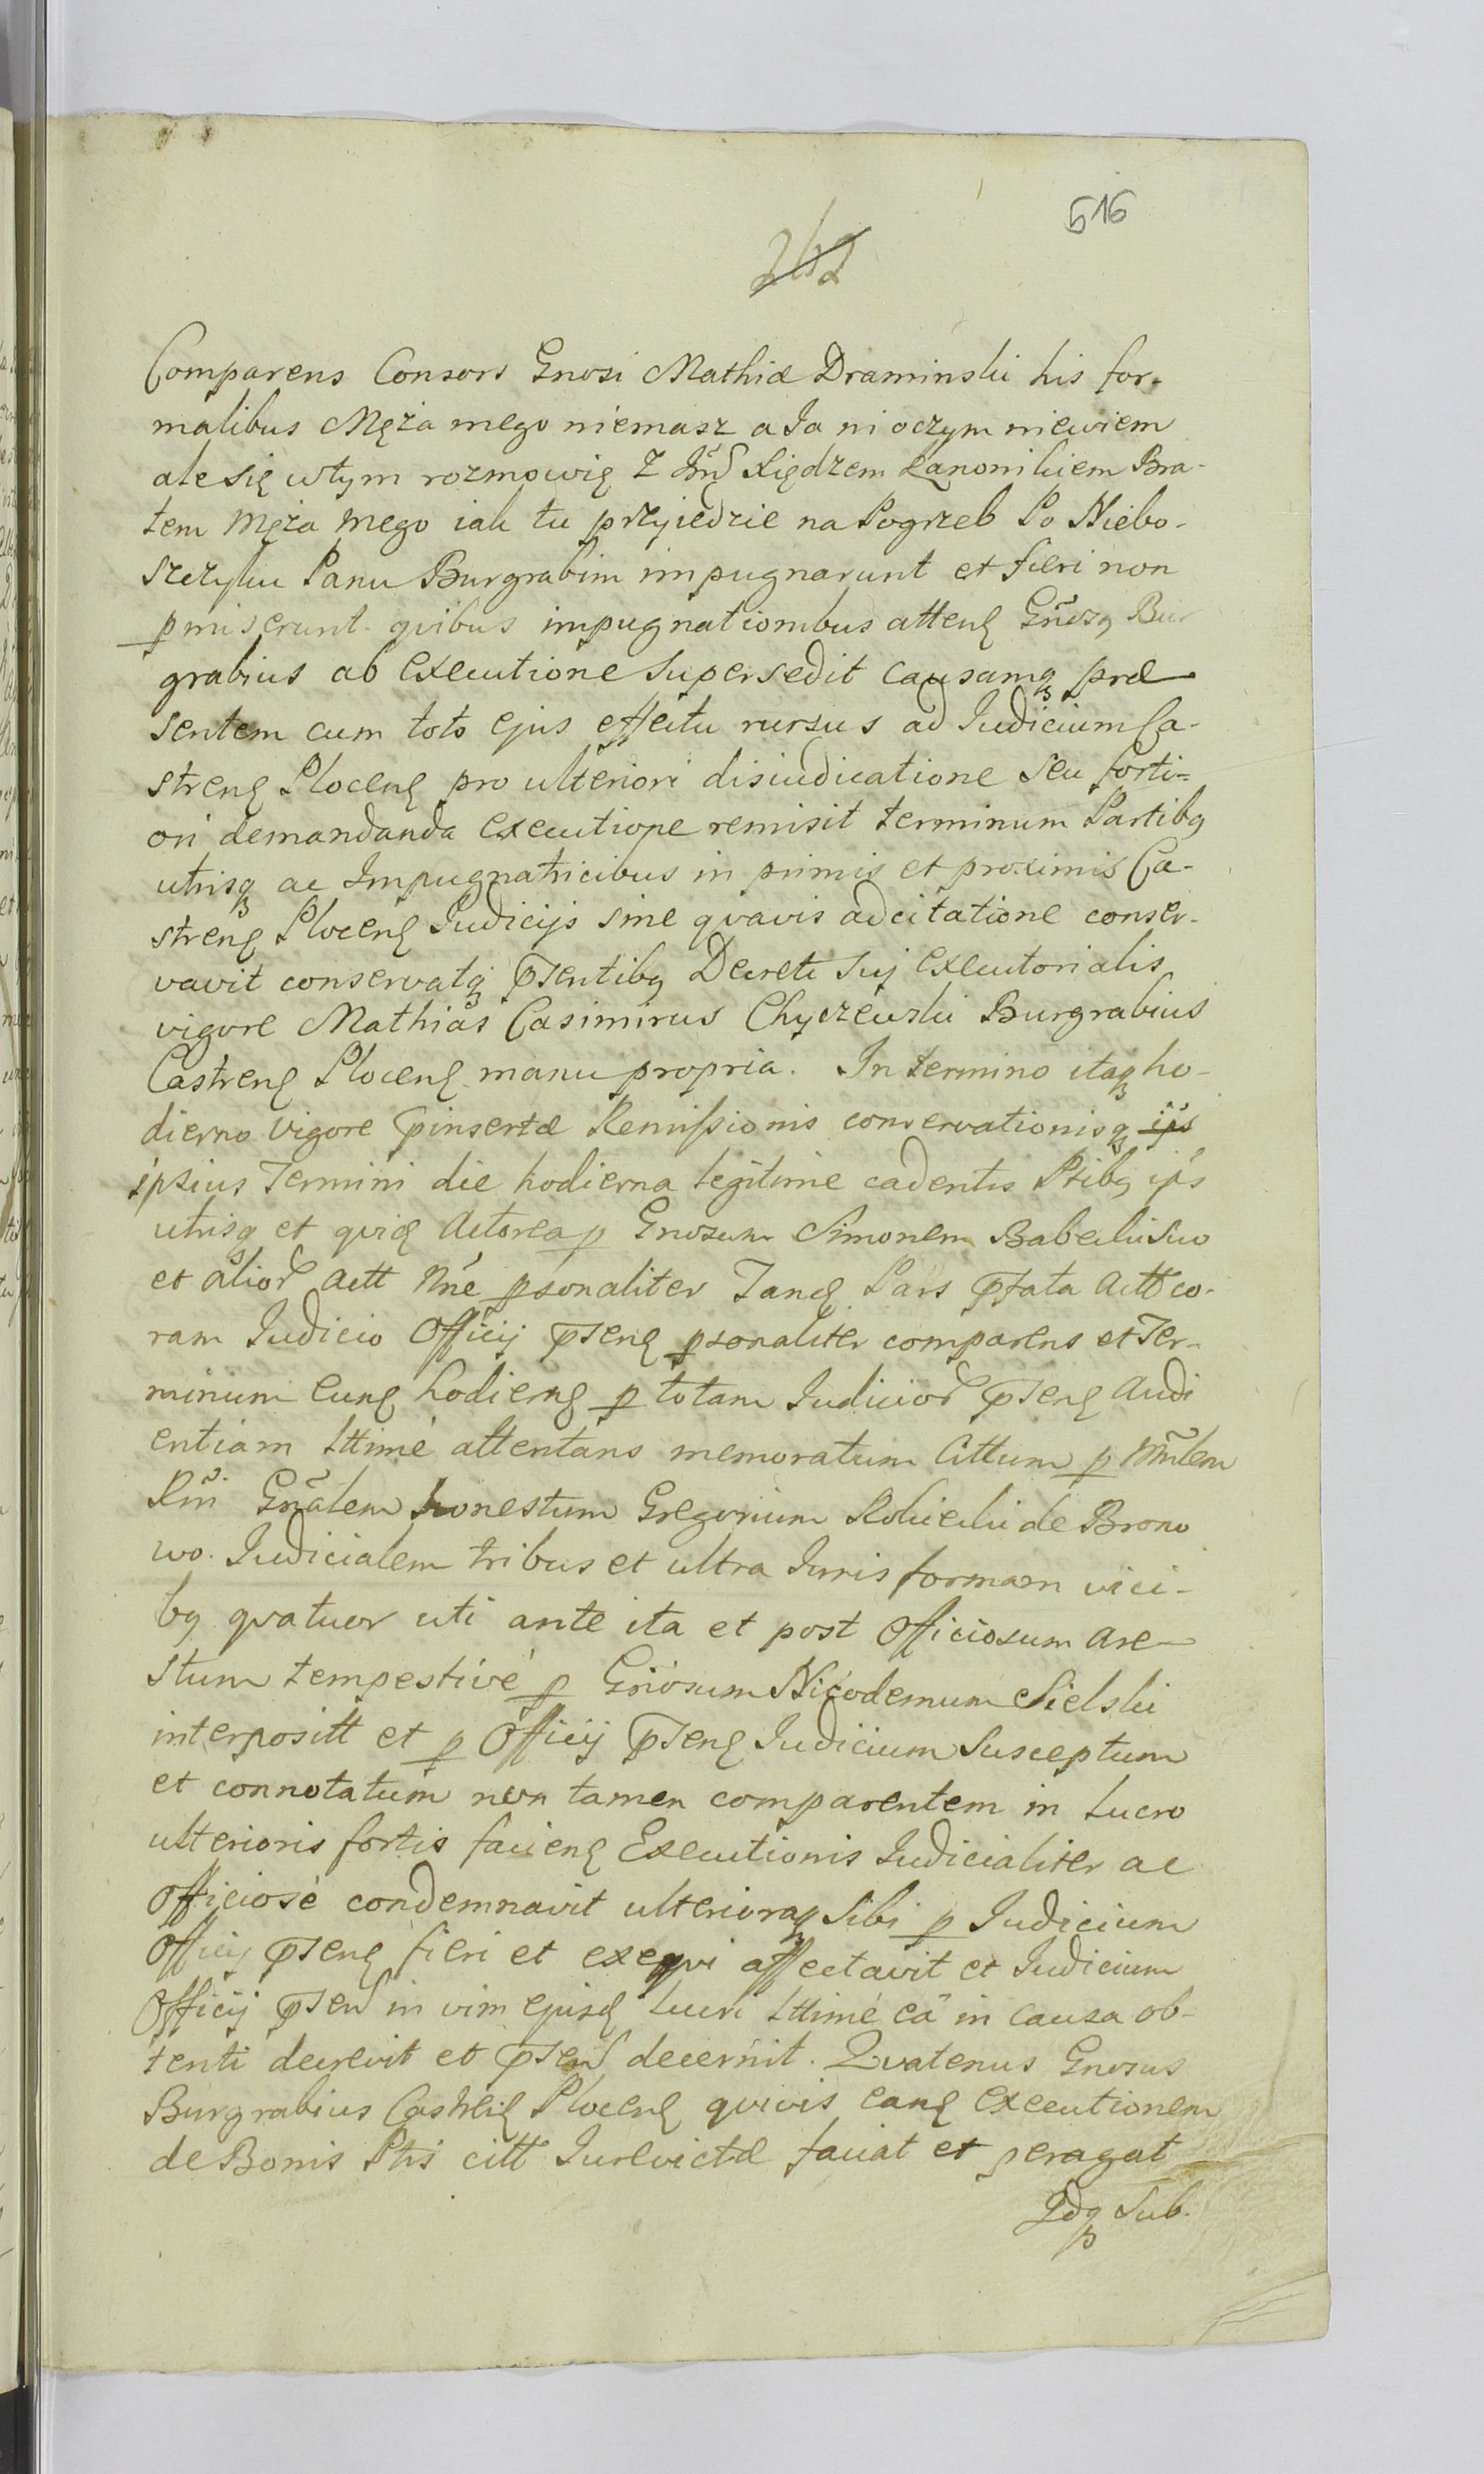 516
262
Comparens Consors Gnosi Mathiæ Draminski his for-
malibus Męża mego niemasz a Ja ni oczym niewiem
ale się wtym rozmowię z Jmć Xiędzem Kanonikiem Bra-
tem Męża mego iak tu przyiedzie na Pogrzeb Po Niebo-
szczyku Panu Burgrabim impugnarunt et fieri non
pmiserunt quibus impugnationibus attenꝭ Gñosꝯ Bur
grabius ab executione supersedit causamqꝫ præ
sentem cum toto ejus effectu rursus ad Judicium Ca-
strenꝭ Plocenꝭ pro ulteriori disiudicatione seu forti-
ori demandanda executione remisit terminum Partibꝯ
utrisqꝫ ac Impugnatricibus in primis et proximis Ca-
strenꝭ Plocenꝭ Judicijs sine qvavis adcitatione conser-
vavit conservatqꝫ pñsentibꝯ Decreti sui executorialis
vigore Mathias Casimirus Chyczewski Burgrabius
Castrenꝭ Plocenꝭ manu propria. In termino itaqꝫ ho-
dierno vigore pinsertæ Remissionis conservationisqꝫ ips
ipsius Termini die hodierna legitime cadentis Ptibꝯ ips
utrisqꝫ et qviꝭ Actorea p Gnosum Simonem Babecki suo
et alior Actt nñe psonaliter Tanꝭ Pars pfata Actt co-
ram Judicio Officij psenꝭ psonaliter comparens et Ter-
minum eunꝭ hodiernꝭ p totam Judicior psenꝭ Audi
entiam lttimè attentans memoratum Cittum p Mñlem
Rñi Gñalem honestum Gregorium Kokicki de Brono
wo Judicialem tribus et ultra Juris formam vici-
bꝯ qvatuor uti ante ita et post officiosum are-
stum tempestivè p Gñosum Nicodemum Sielski
interpositt et p Officij psenꝭ Judicium susceptum
et connotatum non tamen comparentem in lucro
ulterioris fortis facienꝭ Executionis Judicialiter ac
officiosè condemnavit ulterioraqꝫ sibi p Judicium
Officij psenꝭ fieri et exeqvi affectavit et Judicium
Officij psenꝭ in vim ejusꝭ lucri lttimè eâ in causa ob-
tenti decrevit et psenꝭ decernit. Qvatenus Gnosus
Burgrabius Castrenꝭ Plocenꝭ qvivis eanꝭ executionem
de Bonis Ptis citt Jurevictæ faciat et peragat
Idqꝫ sub.